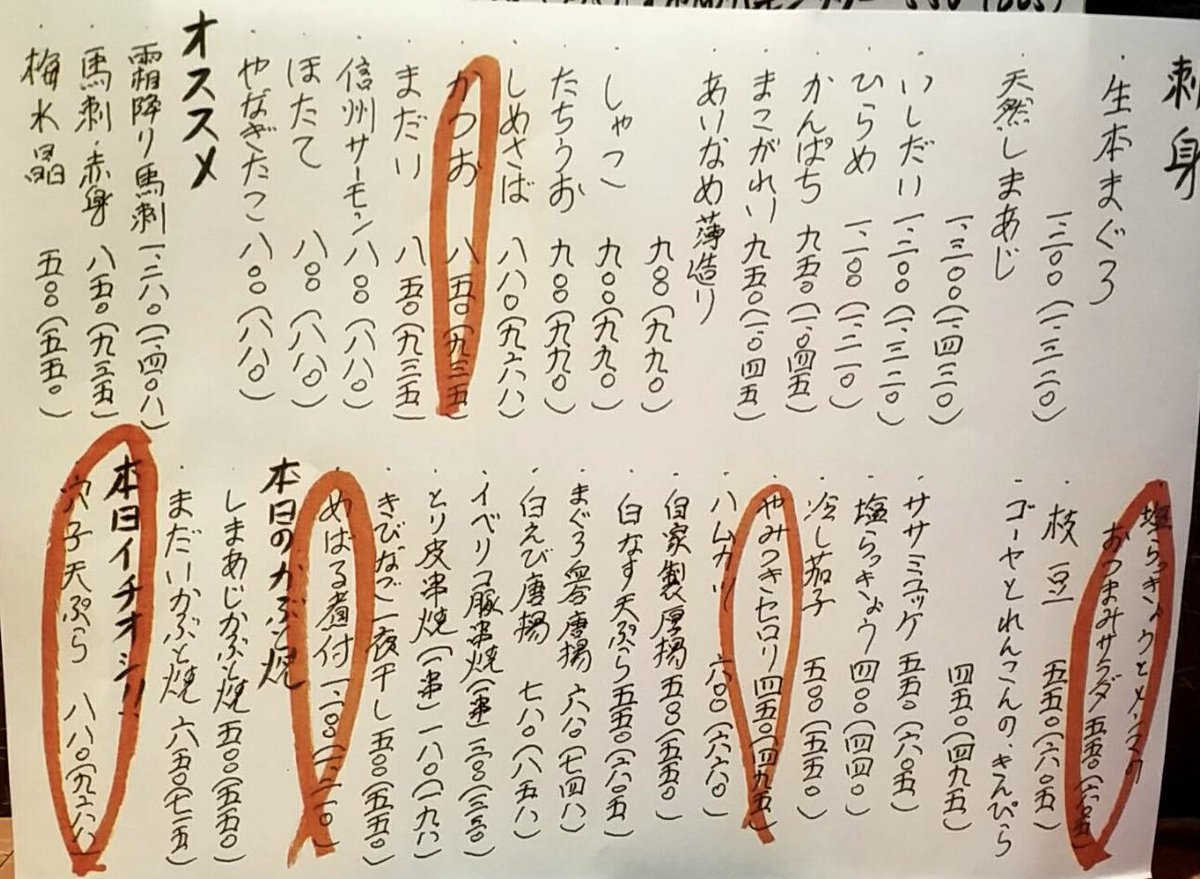 刺身
・生本まぐろ
一、二〇〇(一、三二〇)
・天然しまあじ
一、三〇〇(一、四三〇)
・いしだい 一、二〇〇(一、三二〇)
・ひらめ 一、一〇〇(一、二一〇)
・かんぱち 九五〇(一、〇四五)
・まこがれい 九五〇(一、〇四五)
・あいなめ薄造り
九〇〇(九九〇)
・しゃこ 九〇〇(九九〇)
・たちうお 九〇〇(九九〇)
・しめさば 八八〇(九六八)
・かつお 八五〇(九三五)
・まだい 八五〇(九三五)
・信州サーモン 八〇〇(八八〇)
・ほたて 八〇〇(八八〇)
・やなぎたこ 八〇〇(八八〇)
オススメ
・霜降り馬刺 一、二八〇(一、四〇八)
・馬刺・赤身 八五〇(九三五)
・梅水晶 五〇〇(五五〇)
・塩らっきょうとメンマの
おつまみサラダ 五五〇(六〇五)
・枝豆 五五〇(六〇五)
・ゴーヤとれんこんのきんぴら
四五〇(四九五)
・ササミユッケ 五五〇(六〇五)
・塩らっきょう 四〇〇(四四〇)
・冷し茄子 五〇〇(五五〇)
・やみつきセロリ 四五〇(四九五)
・ハムカツ 六〇〇(六六〇)
・自家製厚揚 五〇〇(五五〇)
・白なす天ぷら 五五〇(六〇五)
・まぐろ唐揚 六八〇(七四八)
・白えび唐揚 七八〇(八五八)
・イベリコ豚串焼(一串) 三〇〇(三三〇)
・とり皮串焼(一串) 一八〇(一九八)
・きびなご一夜干し 五〇〇(五五〇)
・めばる煮付 一、一〇〇(一、二一〇)
本日のかぶと焼
・しまあじかぶと焼 五〇〇(五五〇)
・まだいかぶと焼 六五〇(七一五)
本日イチオシ!!
・穴子天ぷら 八八〇(九六八)